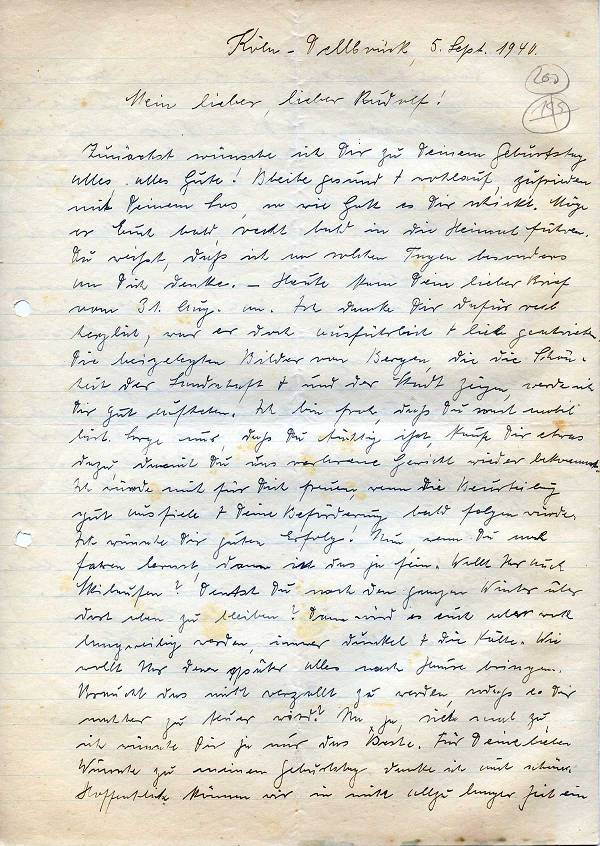 Köln-Dellbrück, 5. Sept. 1940.
200
195
Mein lieber, lieber Rudolf!
Zunächst wünsche ich Dir zu Deinem Geburtstag
alles, alles Gute! Bleibe gesund + wohlauf, zufrieden
mit Deinem Los, so wie Gott es Dir schickt. Möge
er Euch bald, recht bald in die Heimat führen.
Du weißt, daß ich an solchen Tagen besonders
an Dich denke. – Heute kam Dein lieber Brief
vom 31. Aug. an. Ich danke Dir dafür recht
herzlich, war er doch ausführlich + lieb geschrieben.
Die beigelegten Bilder von Bergen, die die Schön-
heit der Landschaft + und der Stadt zeigen, werde ich
Dir gut aufheben. Ich bin froh, daß Du wohl
bist. Sorge nur, daß Du tüchtig ißt, kaufe Dir etwas
dazu damit Du uns verlorene Gewicht wieder bekommst.
Ich würde mich für Dich freuen, wenn die Beurteilung
gut ausfiele + Deine Beförderung bald folgen würde.
Ich wünsche Dir guten Erfolg! Nun, wenn Du noch
fahren lernst, dann ist das ja fein. Wollt Ihr auch
Skilaufen? Denkst Du noch den ganzen Winter über
dort oben zu bleiben? Dann wird es euch aber recht
langweilig werden, immer dunkel + die Kälte. Wie
wollt Ihr denn später alles nach Hause bringen.
Braucht das nicht verzollt zu werden, sodaß es Dir
nachher zu teuer wird? Na ja, sieh mal zu,
ich wünsche Dir ja nur das Beste. Für Deine lieben
Wünsche zu meinem Geburtstag danke ich auch schön.
Hoffentlich können wir in nicht allzu langer Zeit ein